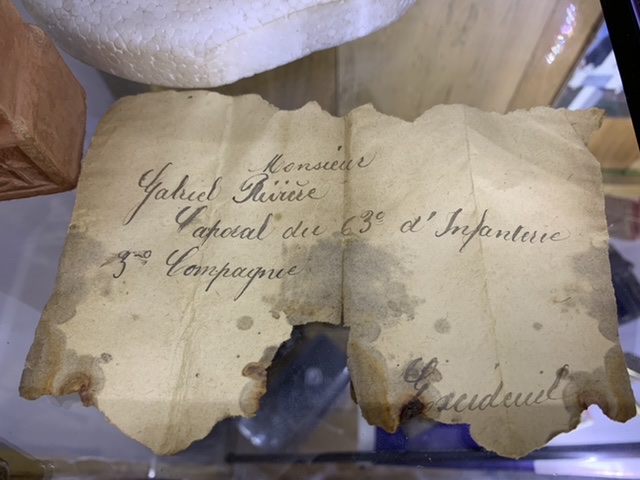 Monsieur
Gabriel Rivière
Caporal du 63e d'Infanterie
3me Compagnie